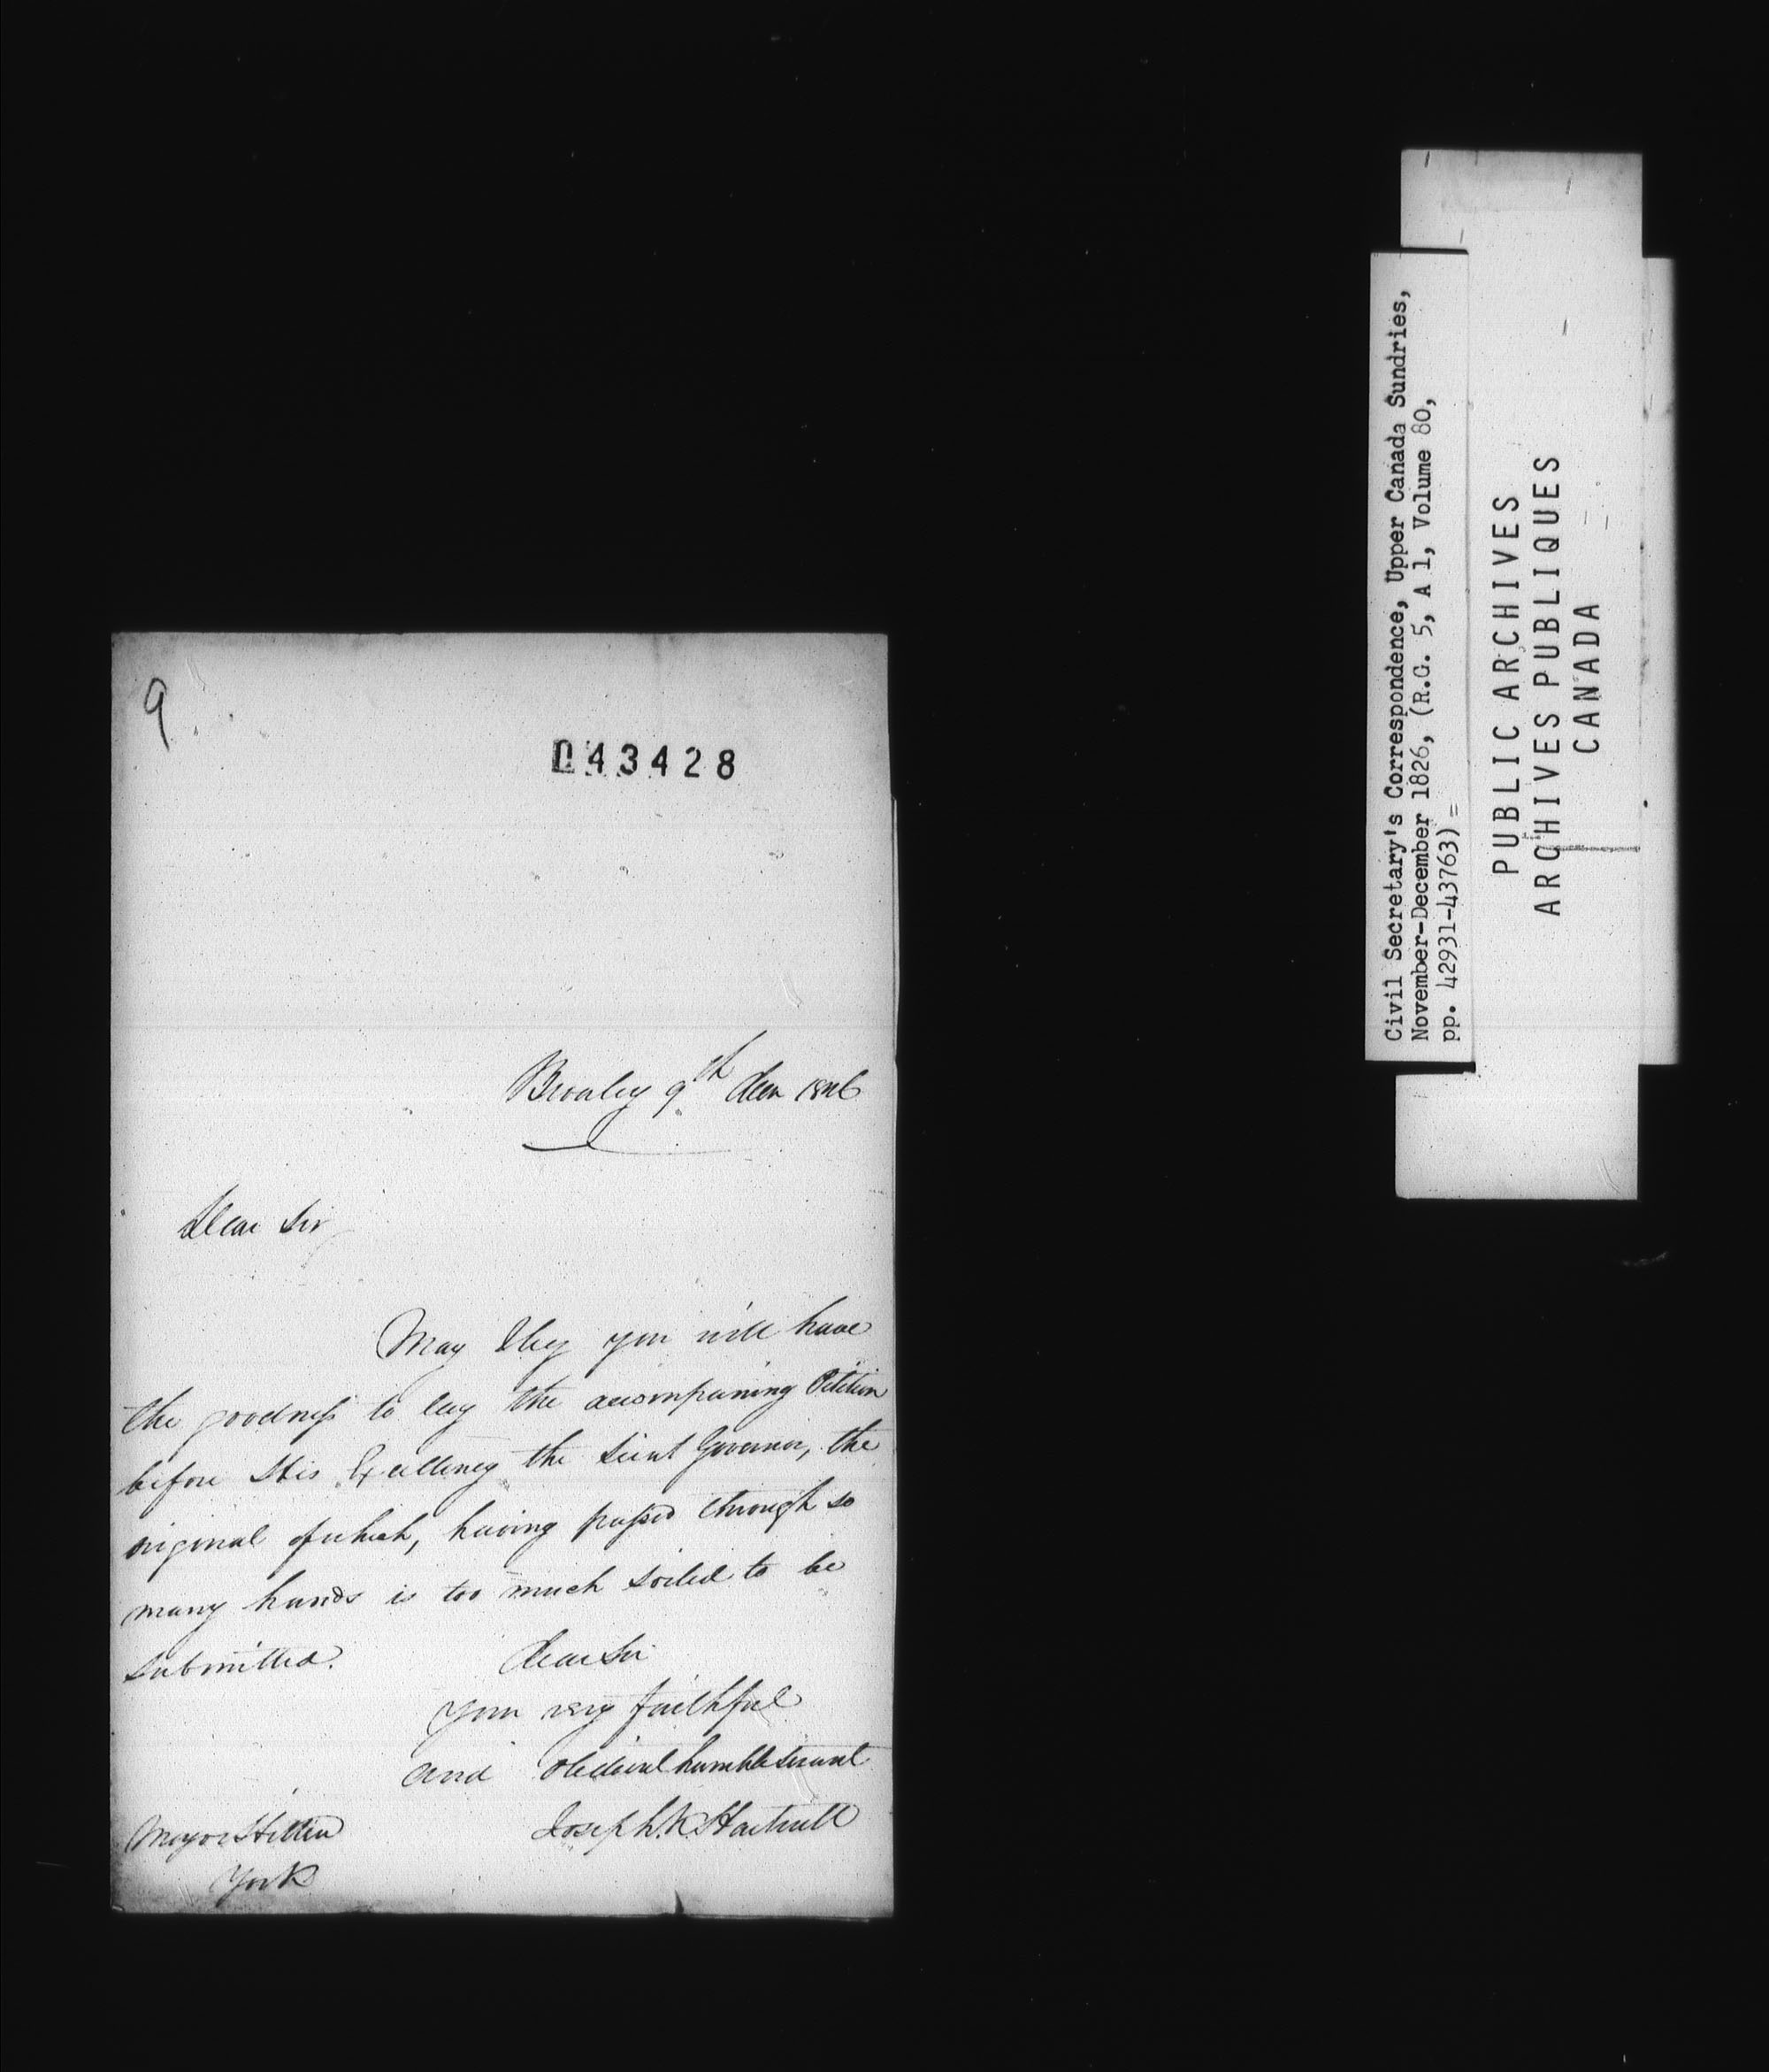 9
043428
9th Decr 1826
Dear Sir
May I beg you will have
the goodness to lay the accompaning Petition
before His Excellency the Lieut Governor, the
original of which, having passed through so
many hands is too much soiled to be
submitted.
Dear Sir
your very faithful
and obedient humble servant
Joseph. N. Hartwell
Mayor Hillier
York
Civil Secretary's Correspondence, Upper Canada Sundries,
November-December 1826, (R.G. 5, A 1, Volume 80,
pp. 42931-43763) =
PUBLIC ARCHIVES
ARCHIVES PUBLIQUES
CANADA